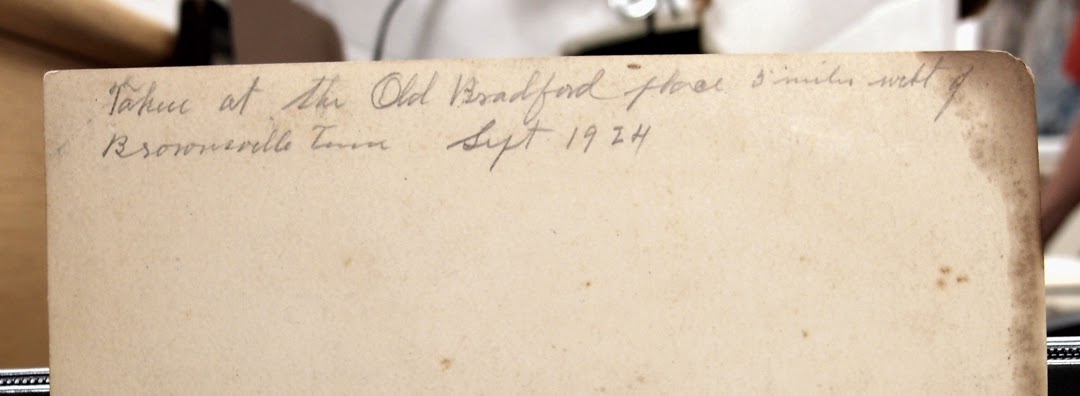 Taken at the Old Bradford place 5 miles west of
Brownsville Tenn Sept 1924